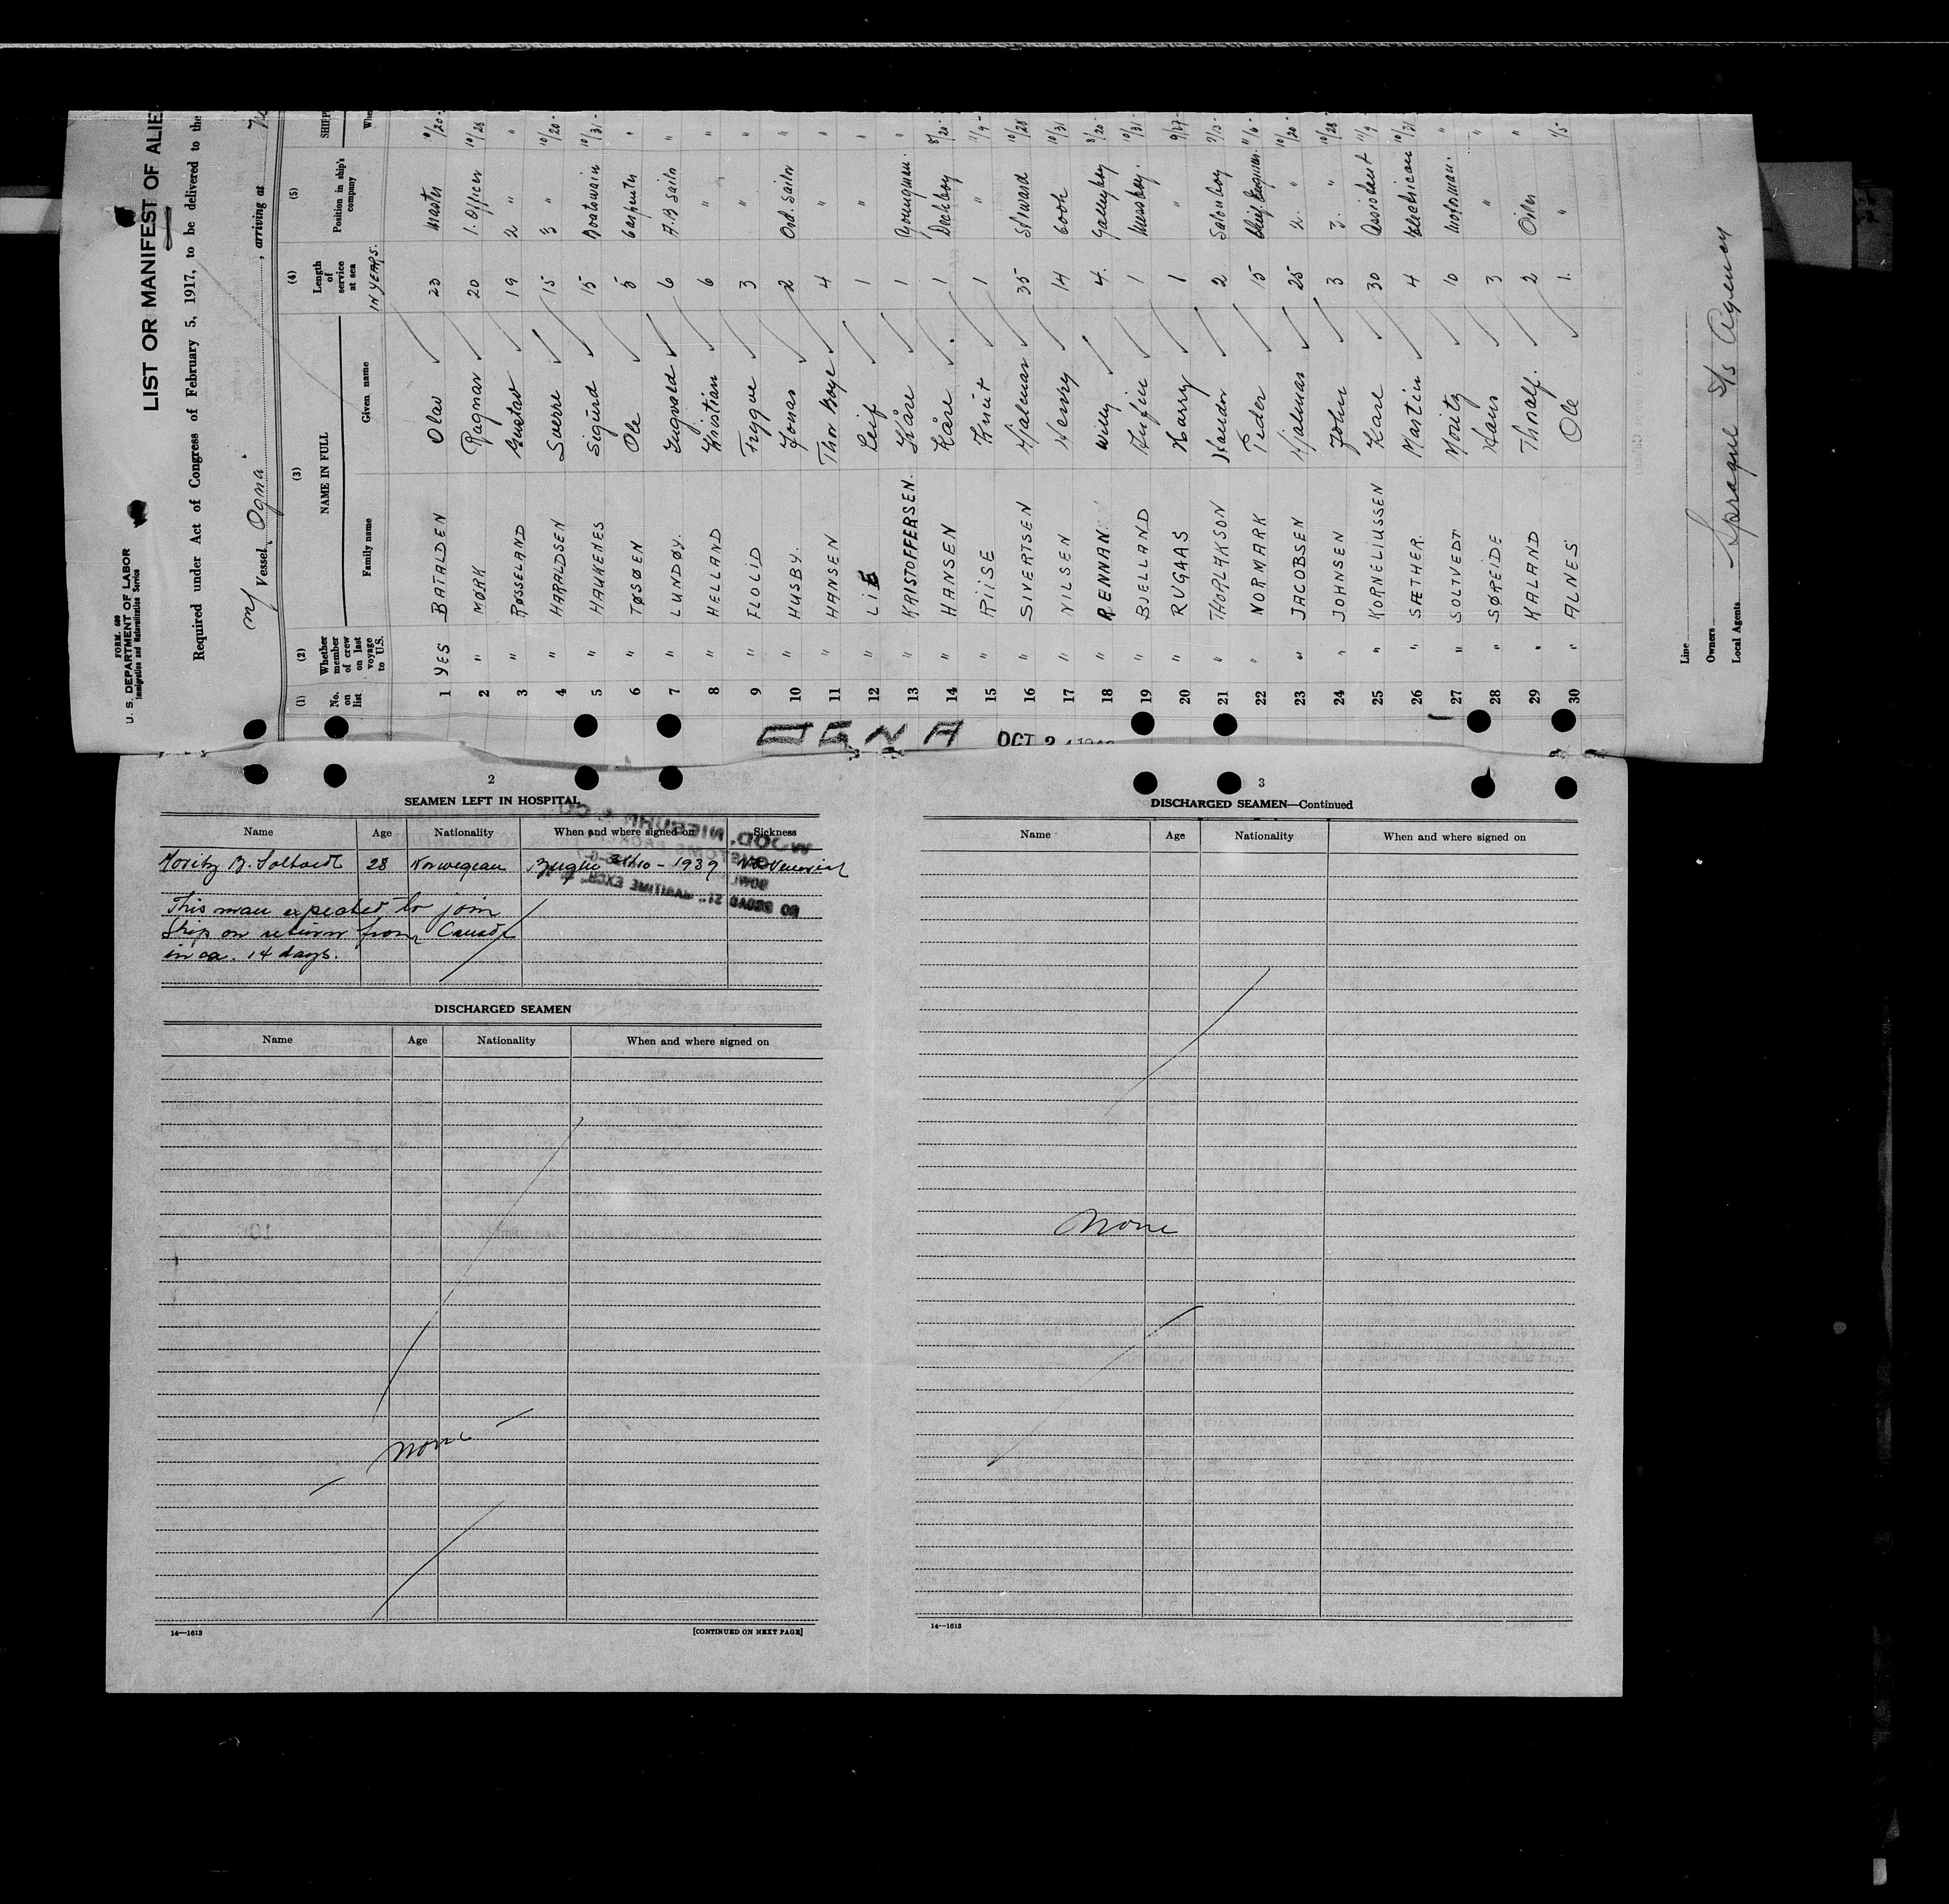 FORM. 680
U. S. DEPARTMENT OF LABOR
Immigration and Naturalization Service
LIST OR MANIFEST OF ALIE
Required under Act of Congress of February 5, 1917, to be delivered to the
M/ Vessel "Ogna" , arriving at
(1) (2) (3) (4) (5)
No. on list Whether member of crew on last voyage to U.S. NAME IN FULL Family name Given name Length of service at sea IN YEARS. Position in ship's company SHIPP Whe
1 YES BATALDEN Olav 23 Master 10/20-
2 " MØRK Ragnar 20 1. Officer 10/28
3 " RØSSELAND Gustav 19 2 " "
4 " HARALDSEN Sverre 15 3 " 10/20-
5 " HAUKENES Sigurd 15 Boatswain 10/31-
6 " TØSØEN Ole 8 Carpenter "
7 " LUNDØY. Ingvald 6 A.B Sailor "
8 " HELLAND Kristian 6 " "
9 " FLOLID Trygve 3 " "
10 " HUSBY. Jonas 2 Ord. Sailor "
11 " HANSEN Thor Boye 4 " "
12 " LIE Leif 1 " "
13 " KRISTOFFERSEN. Kåre 1 Youngman. "
14 " HANSEN Kåre 1 Deckboy 8/20-
15 " RIISE Knut 1 " 11/9-
16 " SIVERTSEN Hjalmar 35 Steward 10/28
17 " NILSEN Henry 14 Cook 10/31
18 " RENNAN Willy 4. Galleyboy 8/20-
19 " BJELLAND Arfin 1 Messboy. 10/31-
20 " RUGAAS Harry 1 " 9/27-
21 " THORLAKSON Haldor 2 Salonboy 7/13-
22 " NORMARK Peder 15 Chief. Engman. 11/6-
23 " JACOBSEN Hjalmar 25 2. " 10/20-
24 " JOHNSEN John 3 3. " 10/28-
25 " KORNELIUSSEN Kare 30 Assistant 11/9
26 " SÆTHER. Martin 4 Electrician 10/31
27 " SOLTVEDT Moritz 10 Motorman. "
28 " SØREIDE Hans 3 " "
29 " KALAND Thoralf. 2 Oiler "
30 " ALNES Ole 1. " 1/5-
Line
Owners
Local Agents Sprague S/S Agency
OGNA OCT 2
2
SEAMEN LEFT IN HOSPITAL
Name Age Nationality When and where signed on Sickness
Moritz B. Soltvedt 28 Norwegian 31/10 - 1939 Venerial
This man expected to join
Ship on return from Canada
in ca. 14 days.
DISCHARGED SEAMEN
Name Age Nationality When and where signed on
None
14—1613 [CONTINUED ON NEXT PAGE]
3
DISCHARGED SEAMEN—Continued
Name Age Nationality When and where signed on
None
14—1613